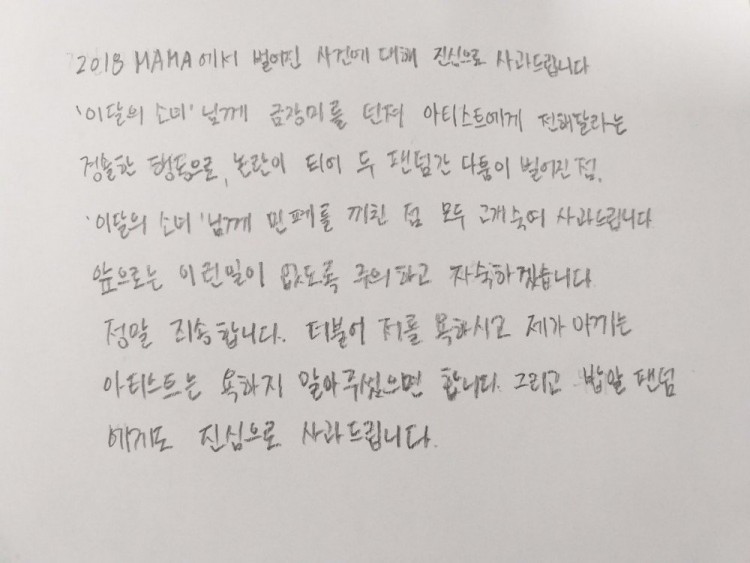 2018 MAMA에서 벌어진 사건에 대해 진심으로 사과드립니다
'이달의 소녀'님께 금장미를 던져 아티스트에게 전해달라는
경솔한 행동으로, 논란이 되어 두 팬덤간 다툼이 벌어진 점,
'이달의 소녀'님께 민폐를 끼친 점 모두 고개숙여 사과드립니다
앞으로는 이런일이 없도록 주의하고 자숙하겠습니다
정말 죄송합니다. 더불어 저를 욕하시고 제가 아끼는
아티스트는 욕하지 말아주셨으면 합니다. 그리고 밥알 팬덤
에게도 진심으로 사과드립니다.